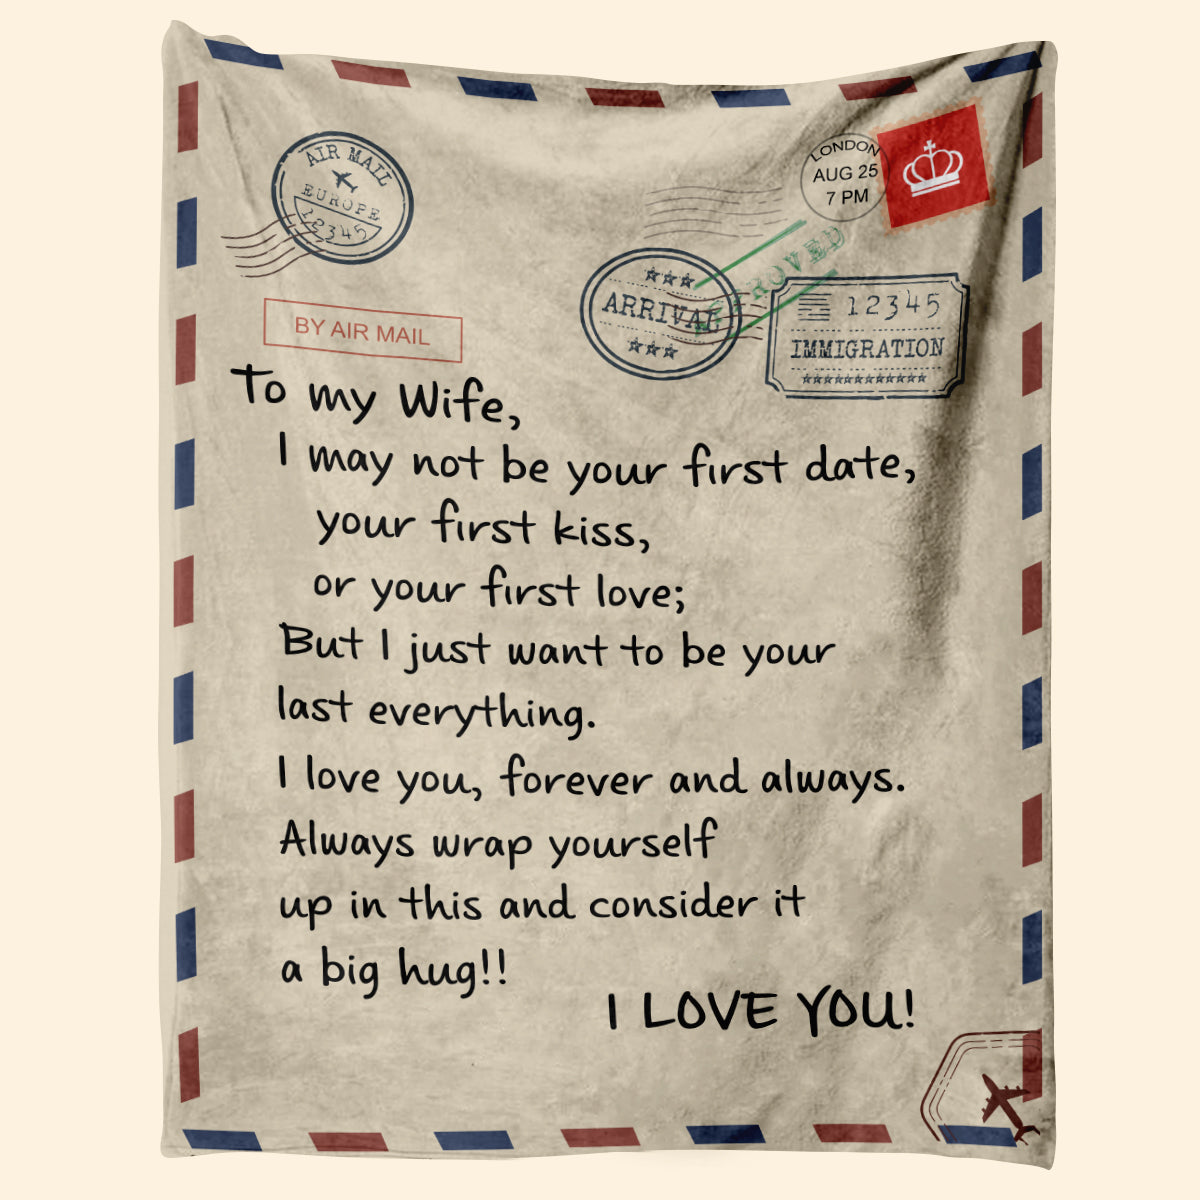 AIR MAIL
EUROPE
12345
LONDON
AUG 25
7 PM
APPROVED
ARRIVAL
12345
IMMIGRATION
BY AIR MAIL
To my Wife,
I may not be your first date,
your first kiss,
or your first love;
But I just want to be your
last everything.
I love you, forever and always.
Always wrap yourself
up in this and consider it
a big hug!!
I LOVE YOU!